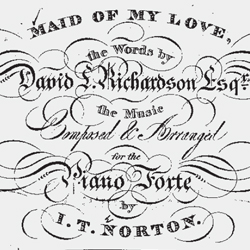 MAID OF MY LOVE,
the Words by
David L. Richardson Esqre
the Music
Composed & Arranged
for the
Piano Forte
by
I. T. NORTON.